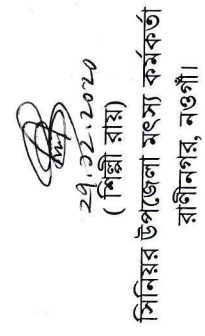 ২৭.১২.২০২০
( শিল্পী রায়)
সিনিয়র উপজেলা মৎস্য কর্মকর্তা
রাণীনগর, নওগাঁ।